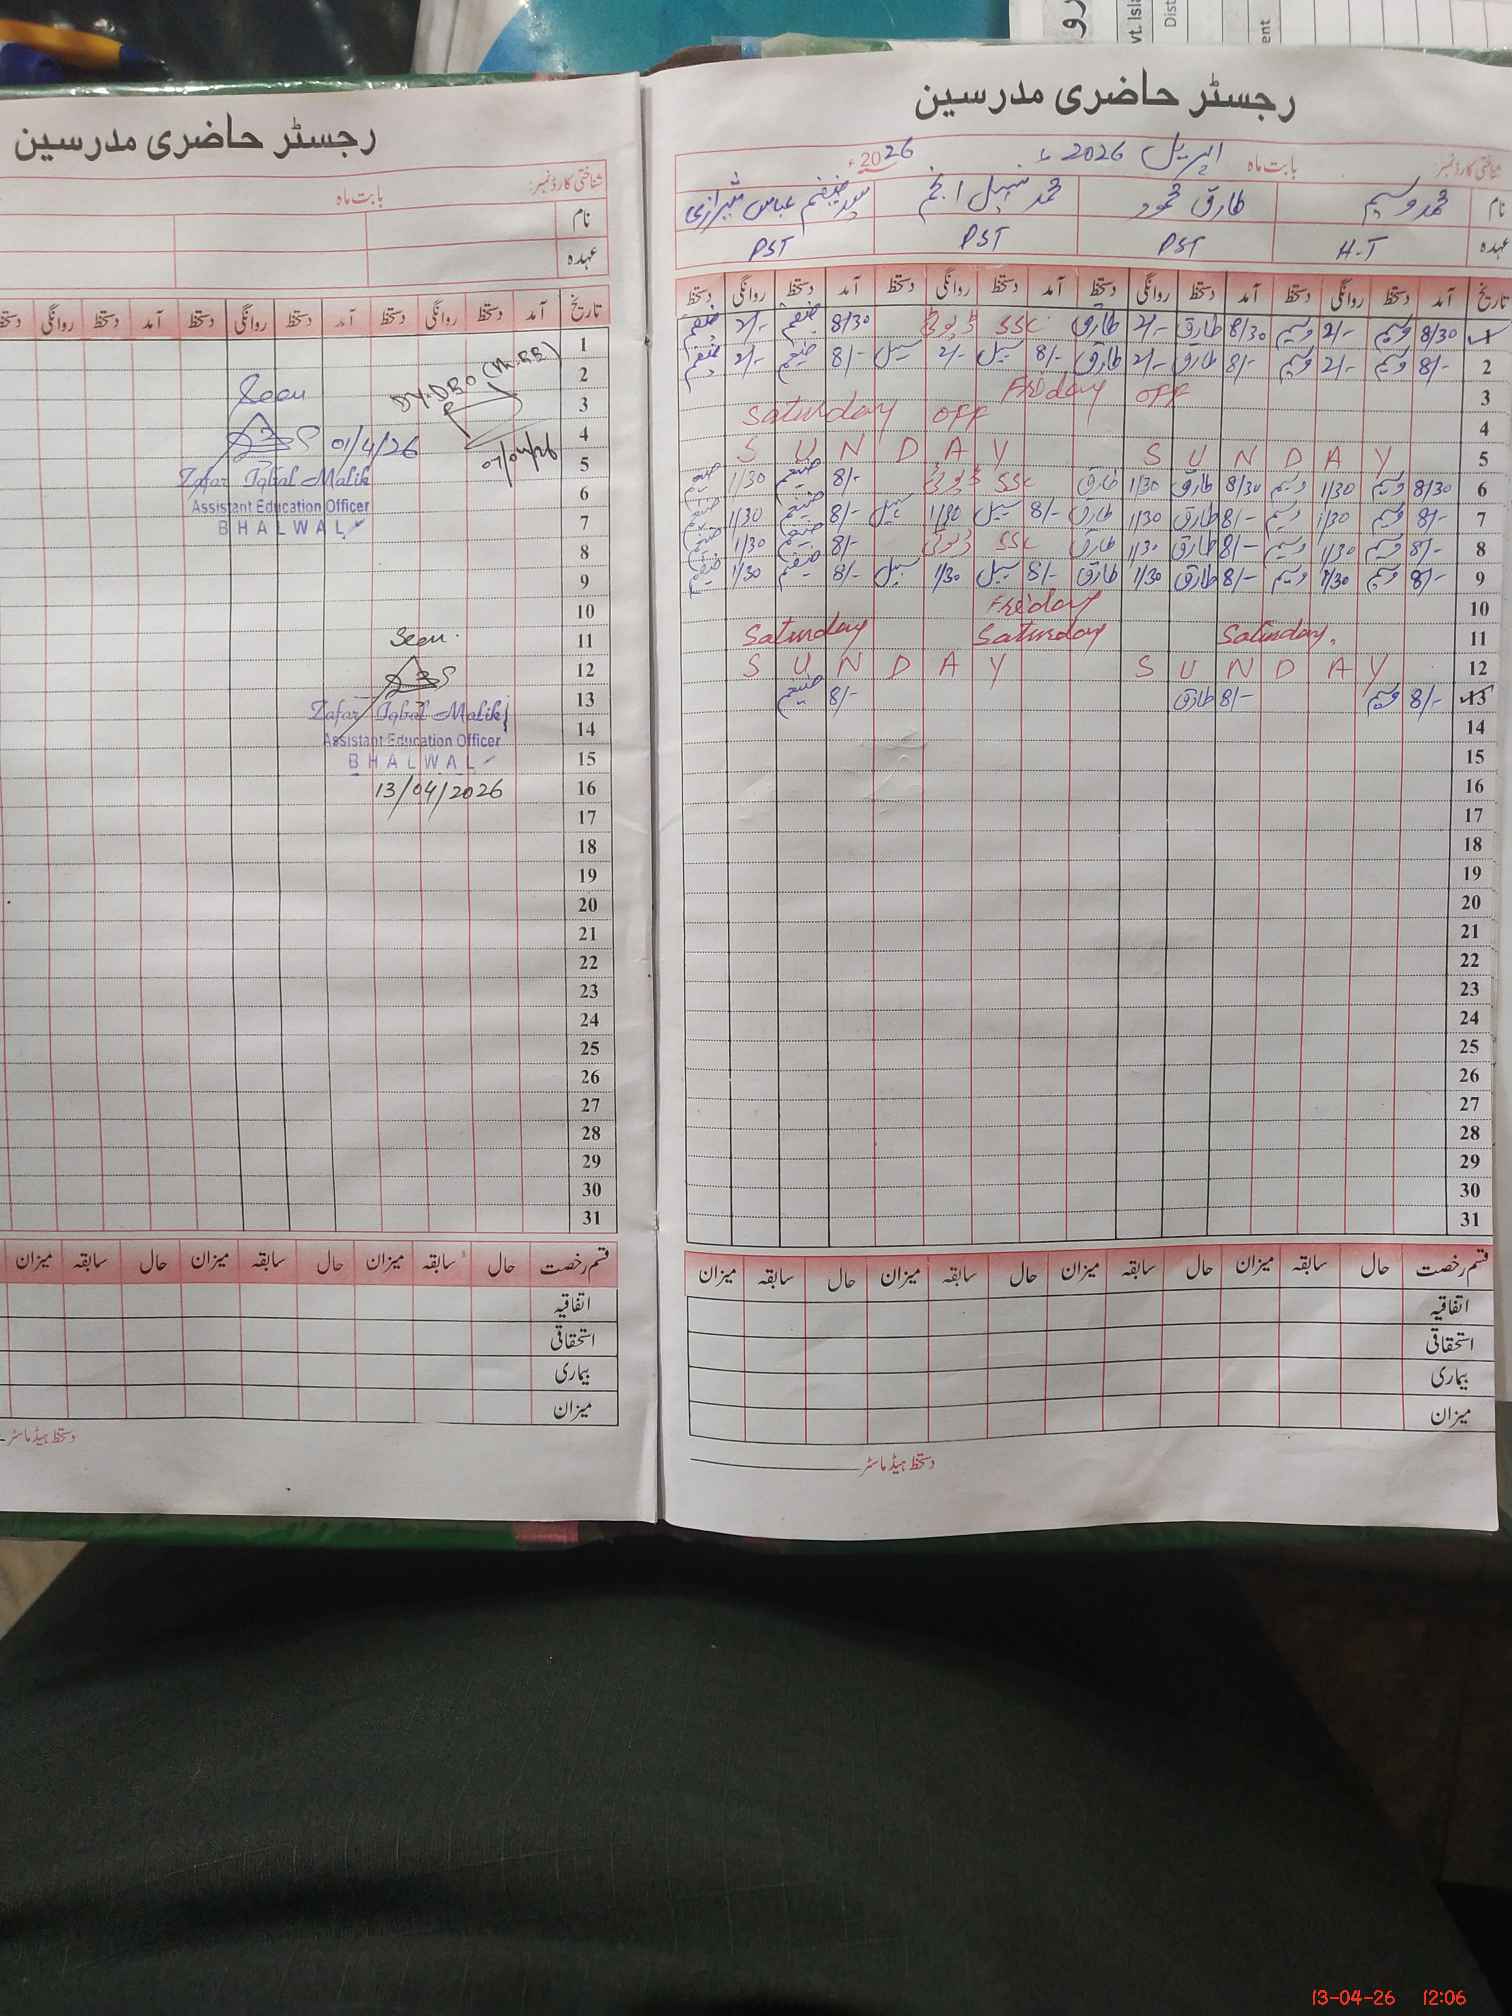 رجسٹر حاضری مدرسین
شناختی کارڈ نمبر: بابت ماہ اپریل 2026 تا 2026ء
نام محمد وسیم طارق محمود محمد سہیل انجم سید ضیغم عباس شیرازی
عہدہ H-T PST PST PST
تاریخ آمد دستخط روانگی دستخط آمد دستخط روانگی دستخط آمد دستخط روانگی دستخط آمد دستخط روانگی دستخط
1 8/30 وسیم 2/- وسیم 8/30 طارق 2/- طارق SSC ڈیوٹی 8/30 ضیغم 2/- ضیغم
2 8/- وسیم 2/- وسیم 8/- طارق 2/- طارق 8/- سہیل 2/- سہیل 8/- ضیغم 2/- ضیغم
3 Friday off
4 Saturday off
5 S U N D A Y S U N D A Y
6 8/30 وسیم 1/30 وسیم 8/30 طارق 1/30 طارق SSC ڈیوٹی 8/- ضیغم 1/30 ضیغم
7 8/- وسیم 1/30 وسیم 8/- طارق 1/30 طارق 8/- سہیل 1/30 سہیل 8/- ضیغم 1/30 ضیغم
8 8/- وسیم 1/30 وسیم 8/- طارق 1/30 طارق SSC ڈیوٹی 8/- ضیغم 1/30 ضیغم
9 8/- وسیم 1/30 وسیم 8/- طارق 1/30 طارق 8/- سہیل 1/30 سہیل 8/- ضیغم 1/30 ضیغم
10 Friday
11 Saturday Saturday Saturday.
12 S U N D A Y S U N D A Y
13 8/- وسیم 8/- طارق 8/- ضیغم
14
15
16
17
18
19
20
21
22
23
24
25
26
27
28
29
30
31
قسم رخصت حال سابقہ میزان حال سابقہ میزان حال سابقہ میزان حال سابقہ میزان
اتفاقیہ
استحقاقی
بیماری
میزان
دستخط ہیڈ ماسٹر
رجسٹر حاضری مدرسین
شناختی کارڈ نمبر: بابت ماہ
نام
عہدہ
تاریخ آمد دستخط روانگی دستخط آمد دستخط روانگی دستخط آمد دستخط روانگی
1
2
3
4
5
6
7
8
9
10
11
12
13
14
15
16
17
18
19
20
21
22
23
24
25
26
27
28
29
30
31
Seen
01/4/26
Zafar Iqbal Malik
Assistant Education Officer
BHALWAL
07/04/26
Seen.
Zafar Iqbal Malik
Assistant Education Officer
BHALWAL
13/04/2026
قسم رخصت حال سابقہ میزان حال سابقہ میزان حال سابقہ میزان
اتفاقیہ
استحقاقی
بیماری
میزان
دستخط ہیڈ ماسٹر
13-04-26 12:06